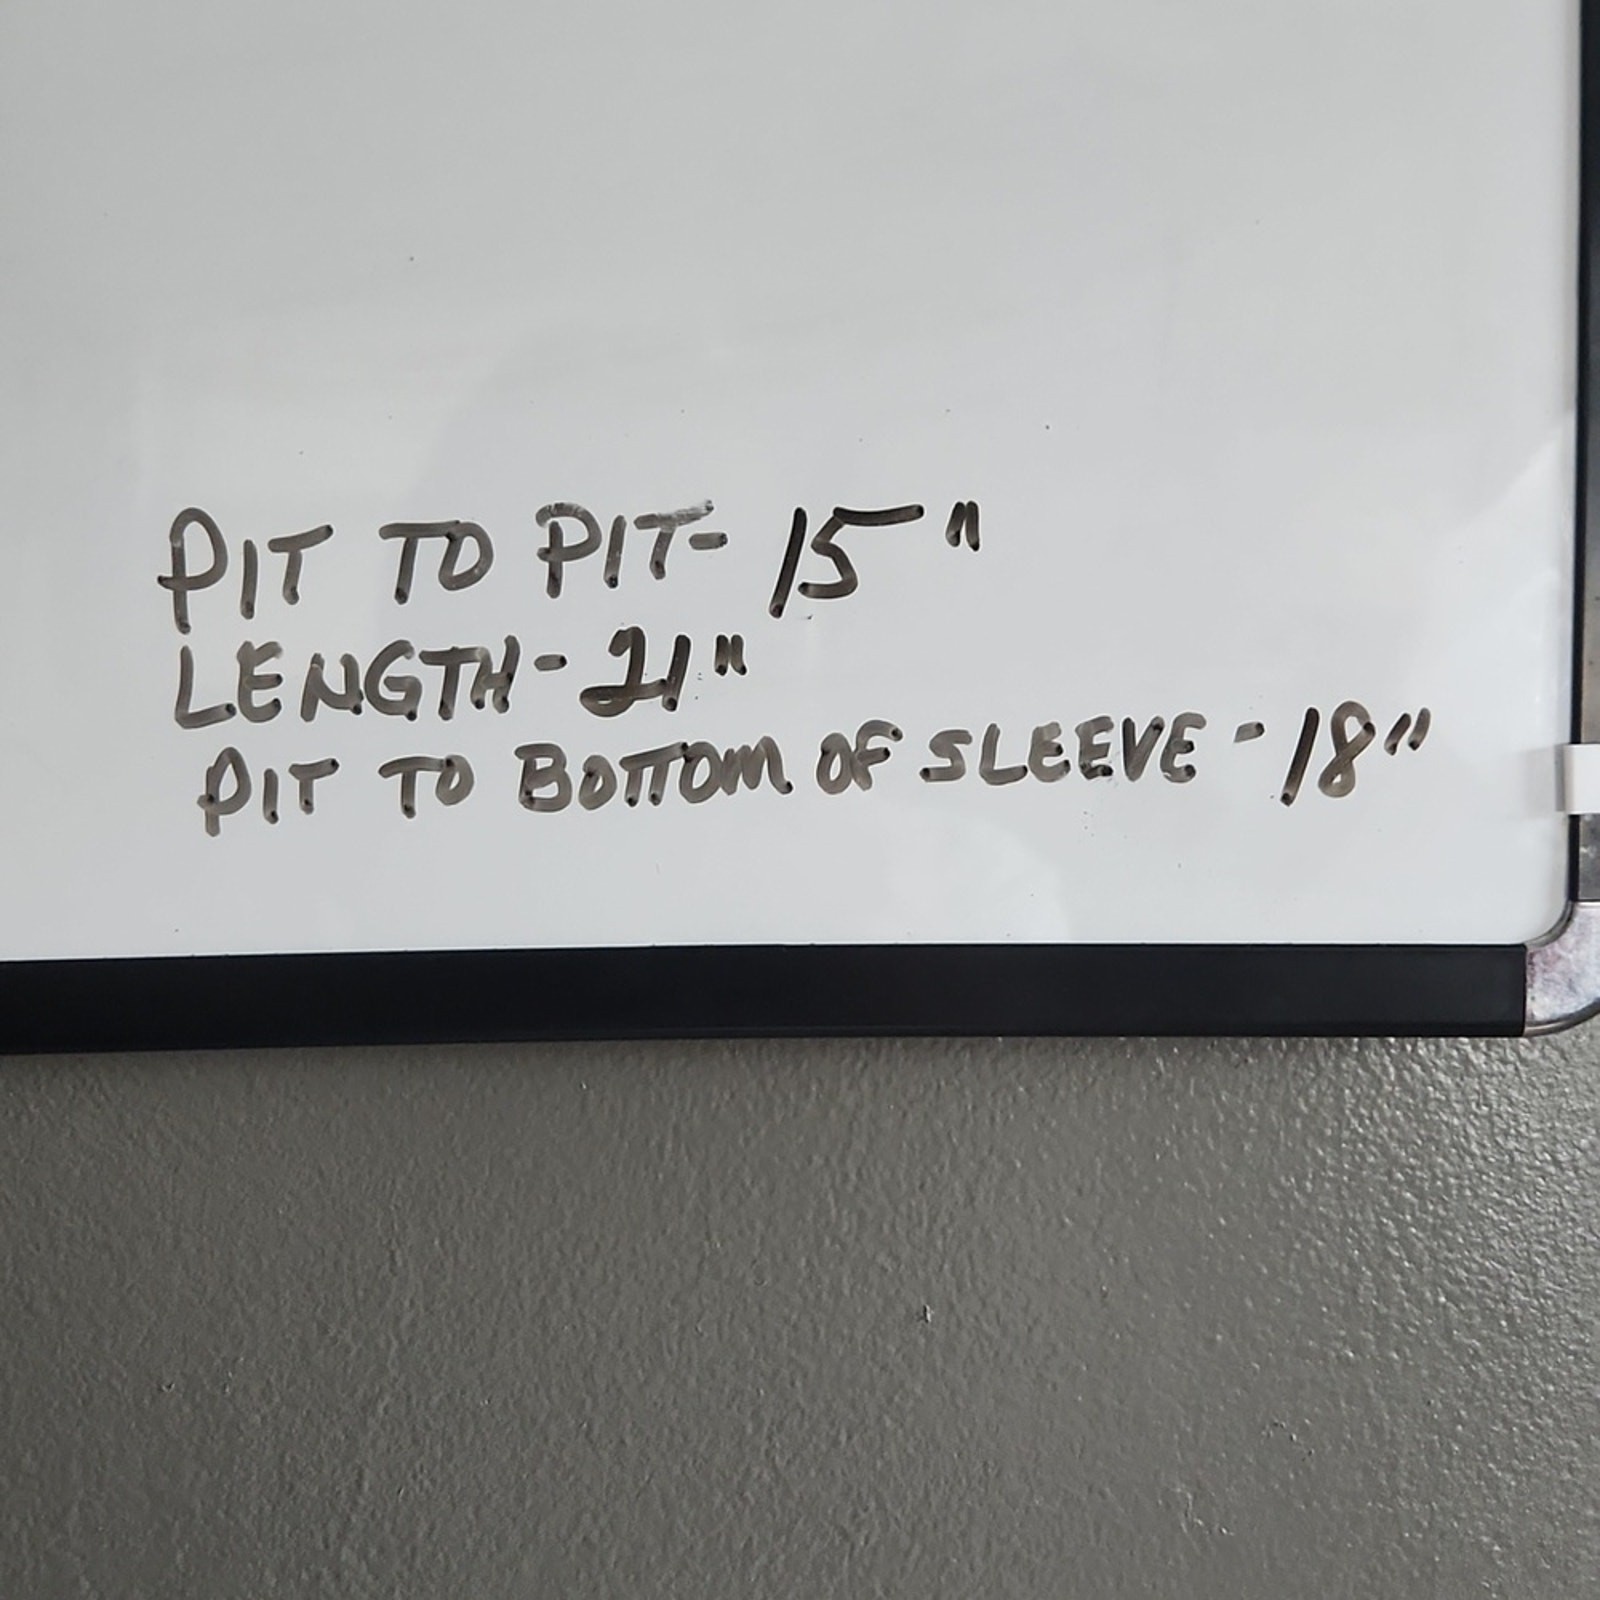 PIT TO PIT- 15"
LENGTH- 21"
PIT TO BOTTOM OF SLEEVE - 18"